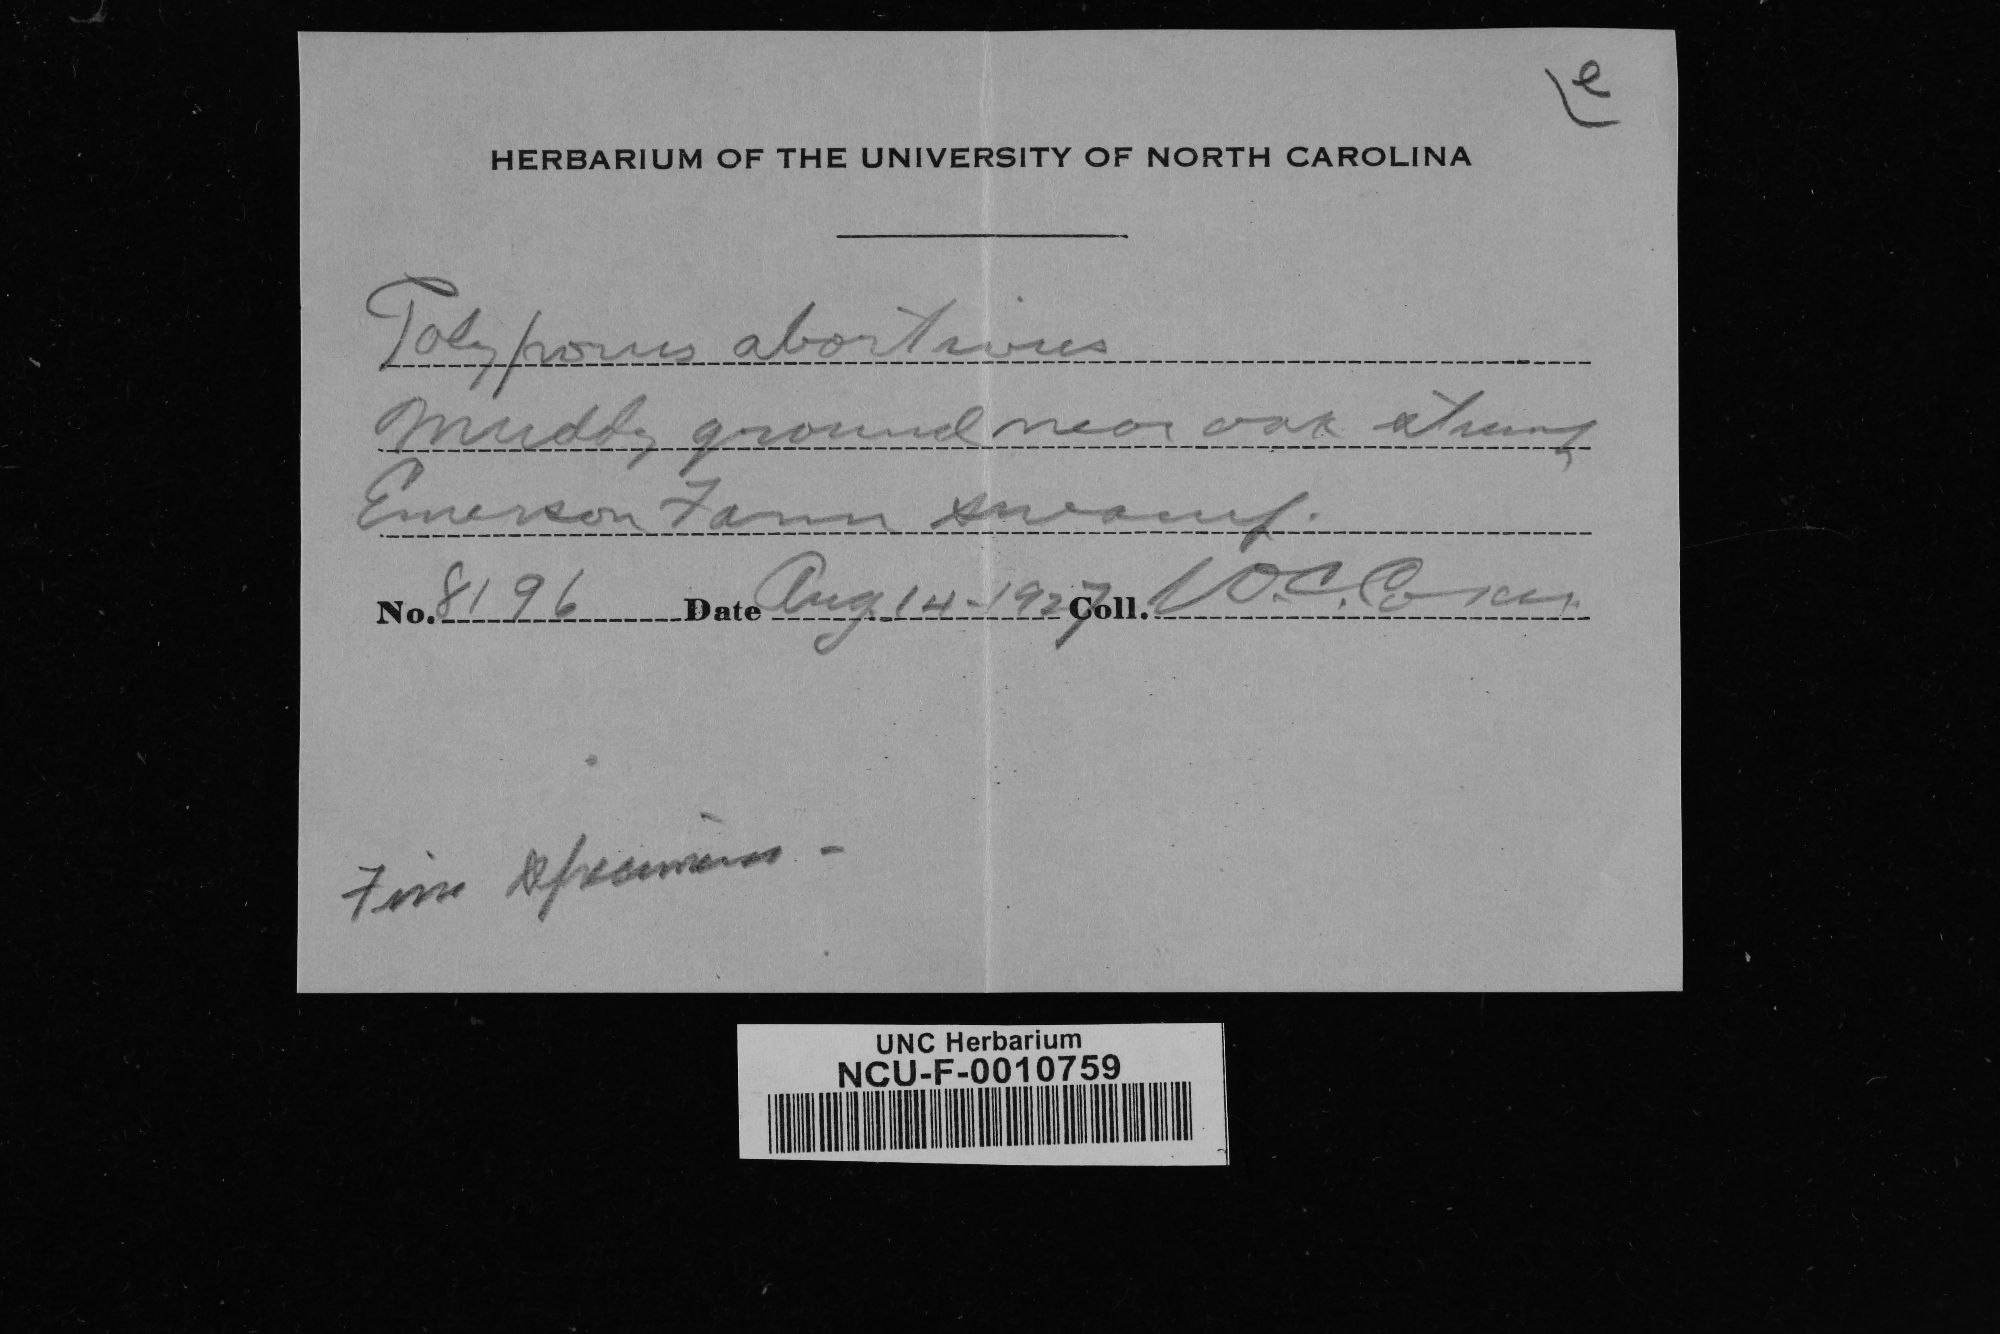 e
HERBARIUM OF THE UNIVERSITY OF NORTH CAROLINA
Polyporus abortivus
Muddy ground near oak stump
Emerson Farm swamp.
No. 8196 Date Aug 14-1927 Coll. W.C. Coker.
Fine specimens -
UNC Herbarium
NCU-F-0010759